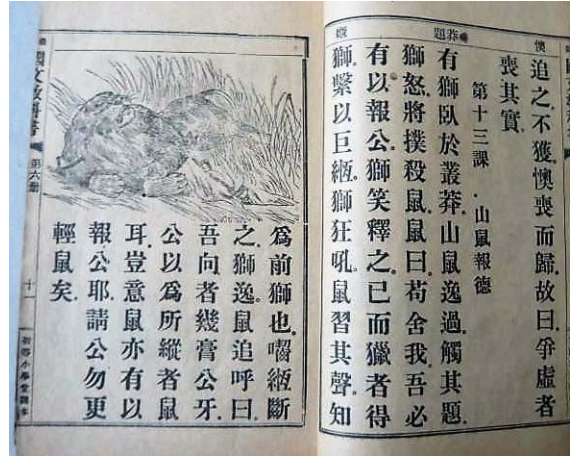 懊
追之不獲.懊喪而歸.故曰.爭虛者
喪其實.
第十三課 山鼠報德
莽題
有獅臥於叢莽.山鼠逸過.觸其題.
獅怒.將撲殺鼠.鼠曰.苟舍我.吾必
有以報公.獅笑釋之.已而獵者得
獅.繫以巨緪.獅狂吼.鼠習其聲.知
爲前獅也.囓緪斷
之.獅逸.鼠追呼曰.
吾向者幾膏公牙.
公以爲所縱者鼠
耳.豈意鼠亦有以
報公耶.請公勿更
輕鼠矣.
國文教科書
第六册
十一